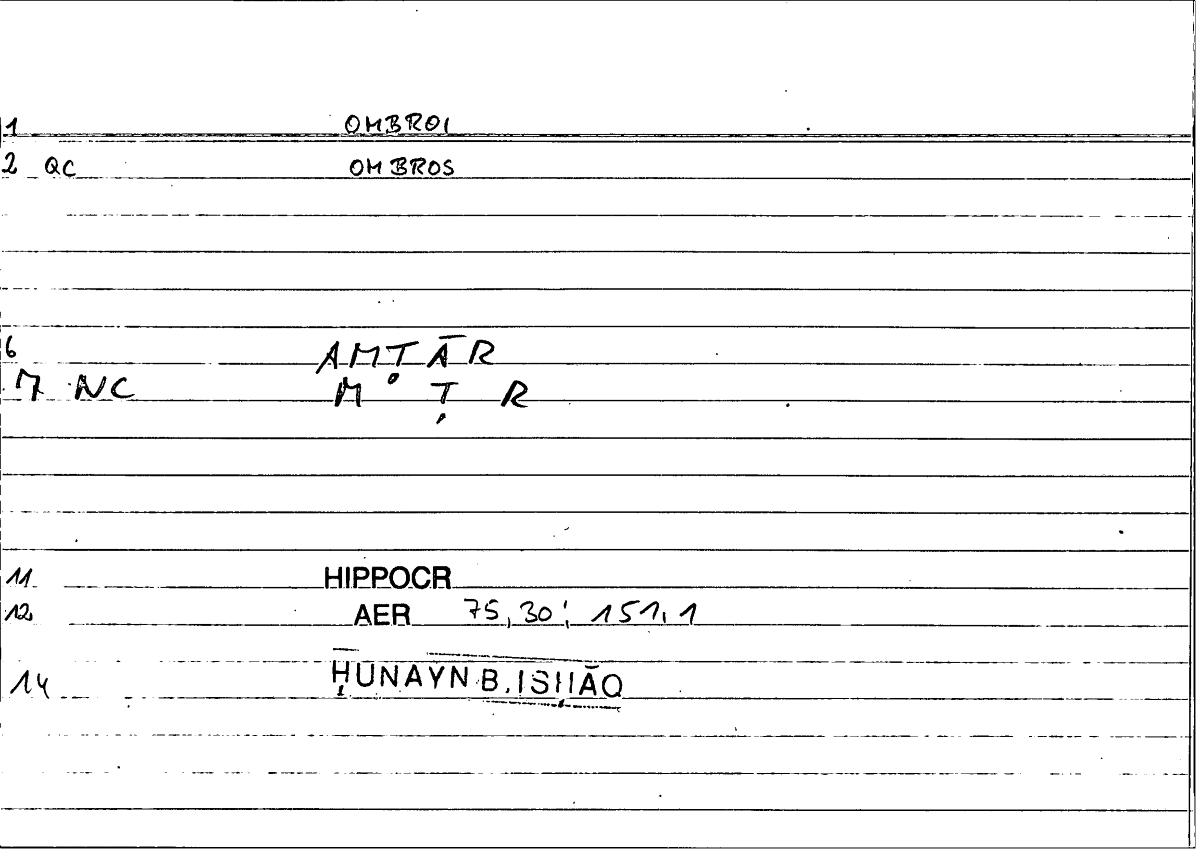 1 OMBROI
2 QC OMBROS
6 AMṬĀR
7 NC M Ṭ R
11 HIPPOCR
12 AER 75,30; 151,1
14 ḤUNAYN B. ISḤĀQ